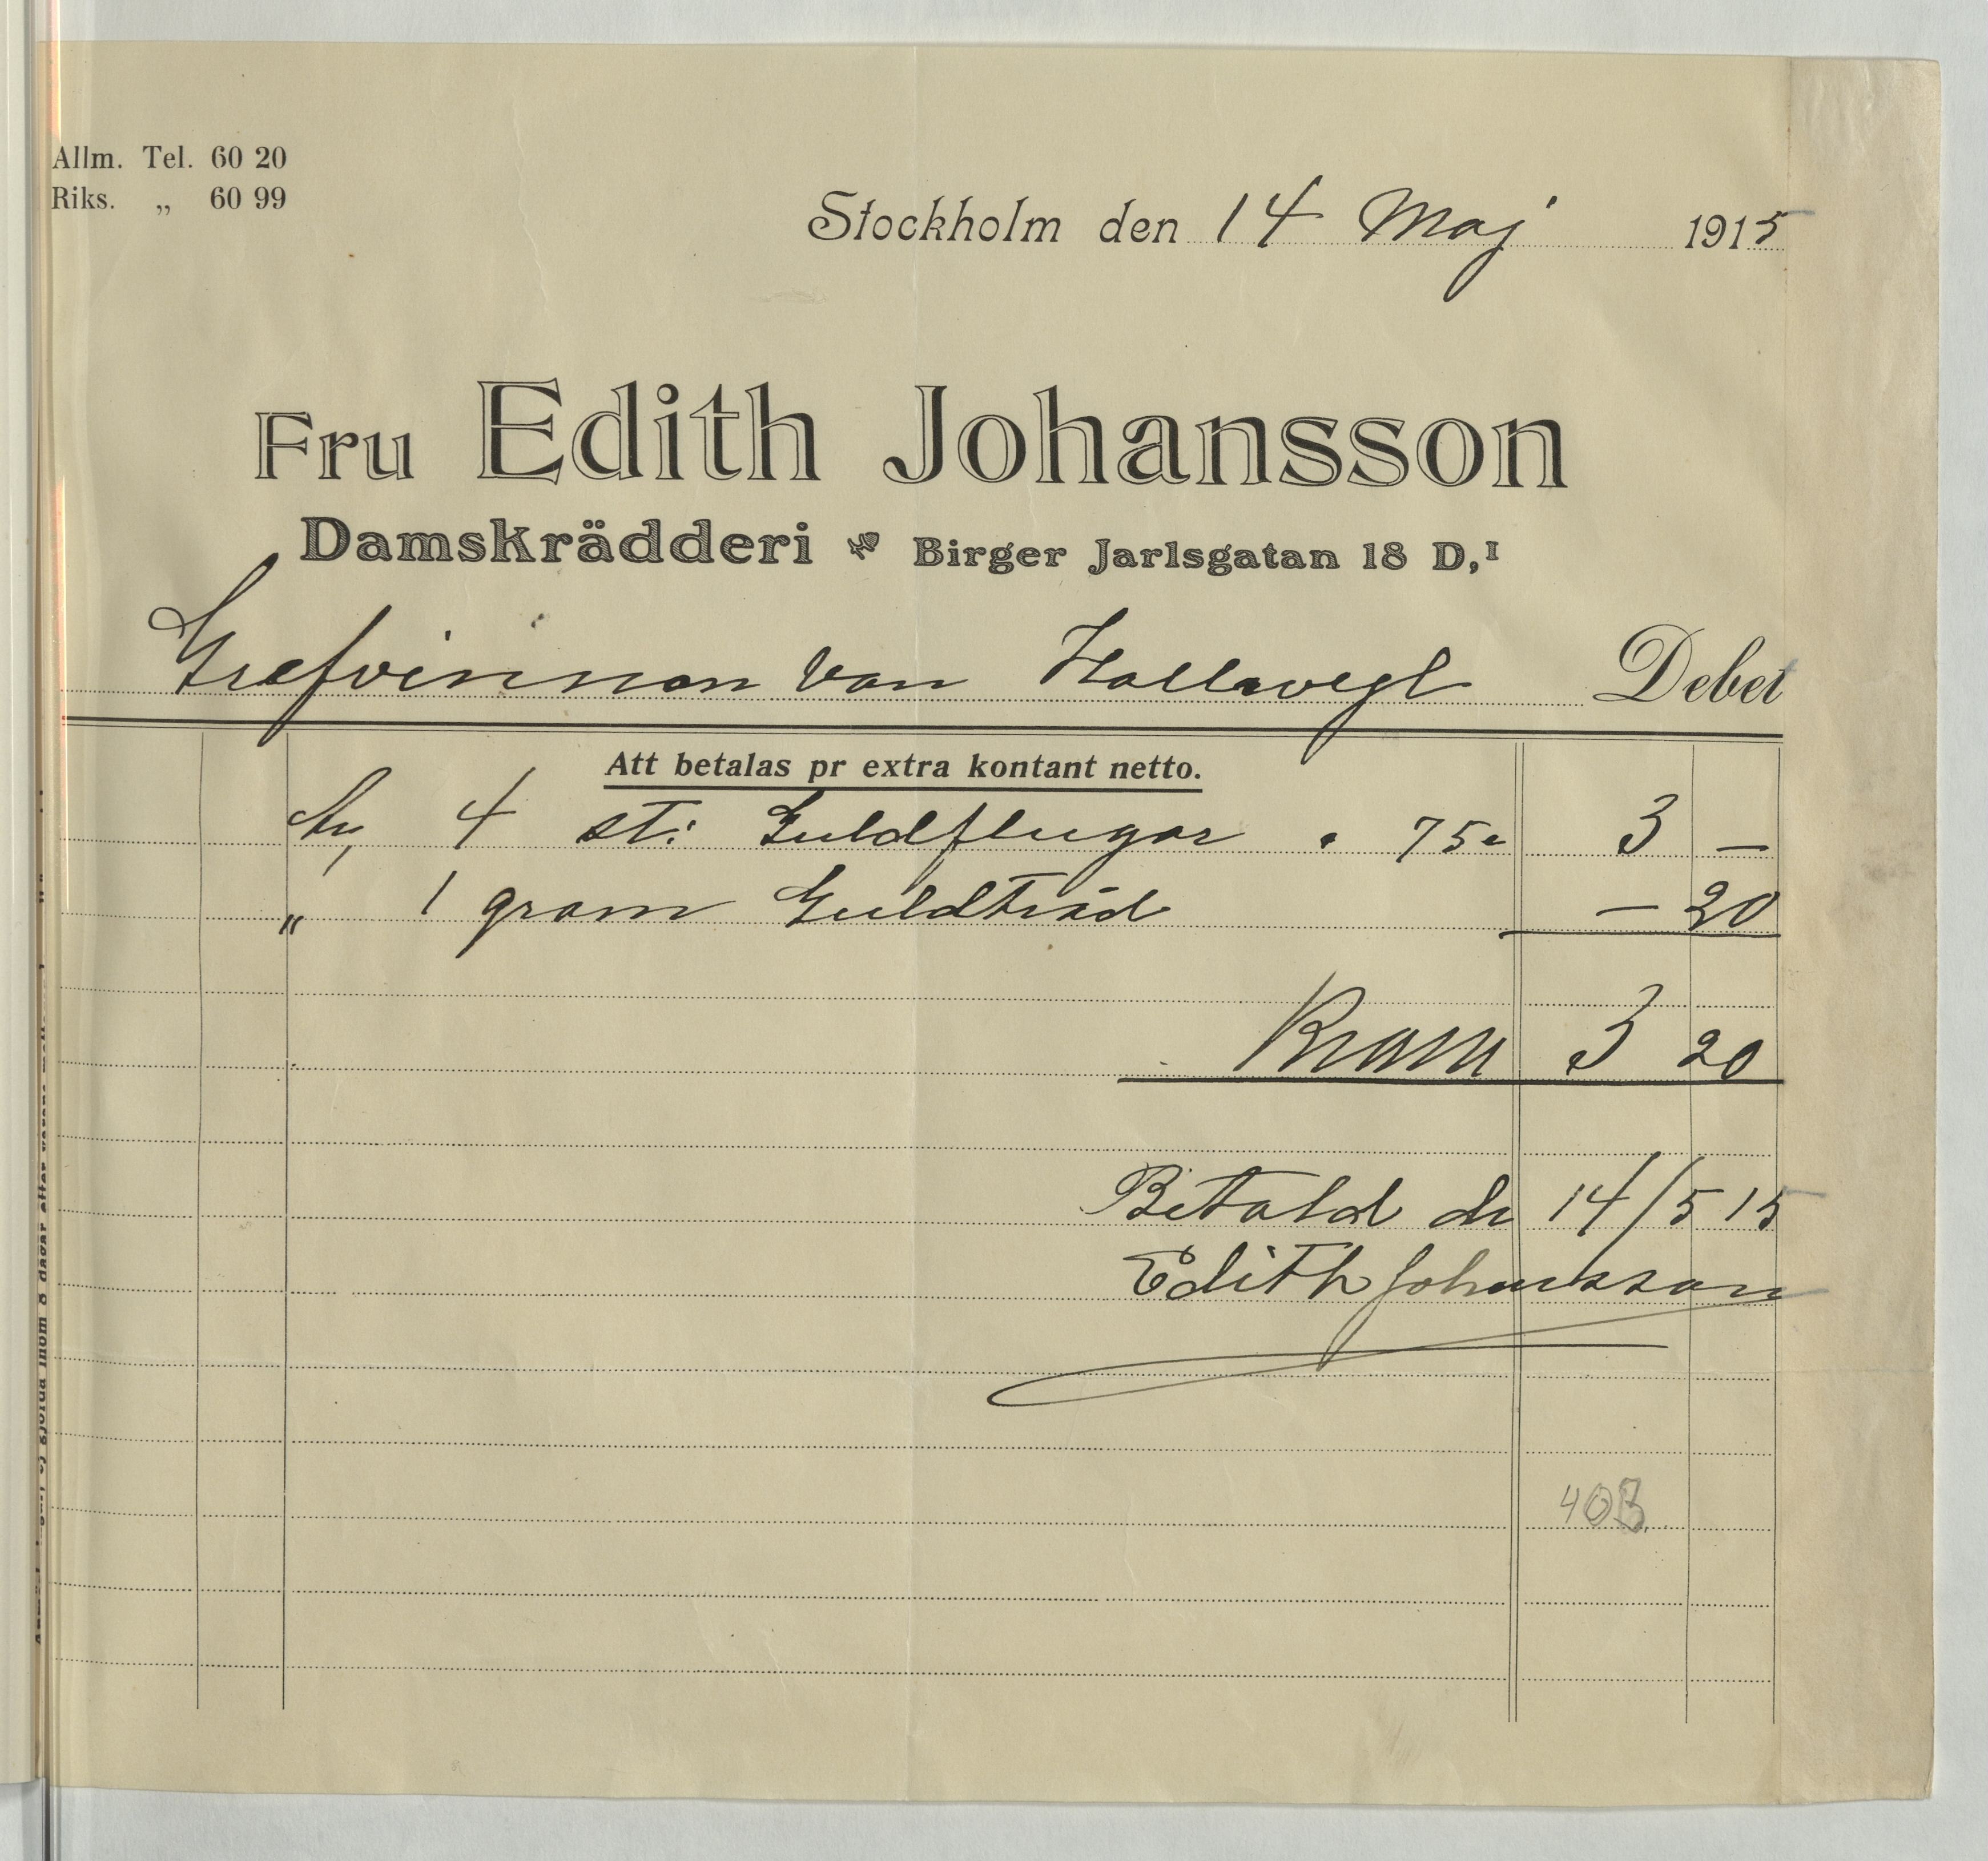 Allm. Tel. 60 20
Riks. „ 60 99
Stockholm den 14 Maj 1915
Fru Edith Johansson
Damskrädderi Birger Jarlsgatan 18 D, I
Grefvinnan von Hallwegl Debet
Att betalas pr extra kontant netto.
4 st: Guldflugor à 75 3 —
„ 1 gram Guldtråd — 20
Kronor 3 20
Betald d. 14/5 15
Edith Johansson
40B